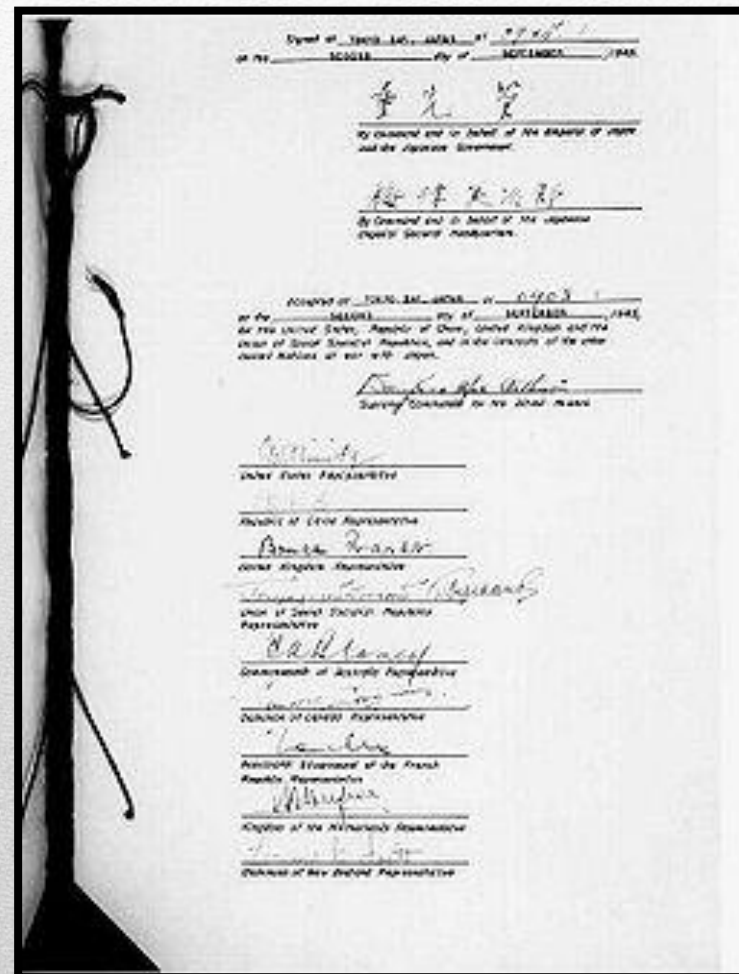 Signed at TOKYO BAY, JAPAN at
on the SECOND day of SEPTEMBER, 1945.
重光葵
By Command and in behalf of the Emperor of Japan
and the Japanese Government.
梅津美治郎
By Command and in behalf of the Japanese
Imperial General Headquarters.
Accepted at TOKYO BAY, JAPAN at 0908 I
on the SECOND day of SEPTEMBER, 1945,
for the United States, Republic of China, United Kingdom and the
Union of Soviet Socialist Republics, and in the interests of the other
United Nations at war with Japan.
Douglas MacArthur
Supreme Commander for the Allied Powers
CWNimitz
United States Representative
Republic of China Representative
Bruce Fraser
United Kingdom Representative
Union of Soviet Socialist Republics
Representative
Commonwealth of Australia Representative
Dominion of Canada Representative
Provisional Government of the French
Republic Representative
Kingdom of the Netherlands Representative
Dominion of New Zealand Representative